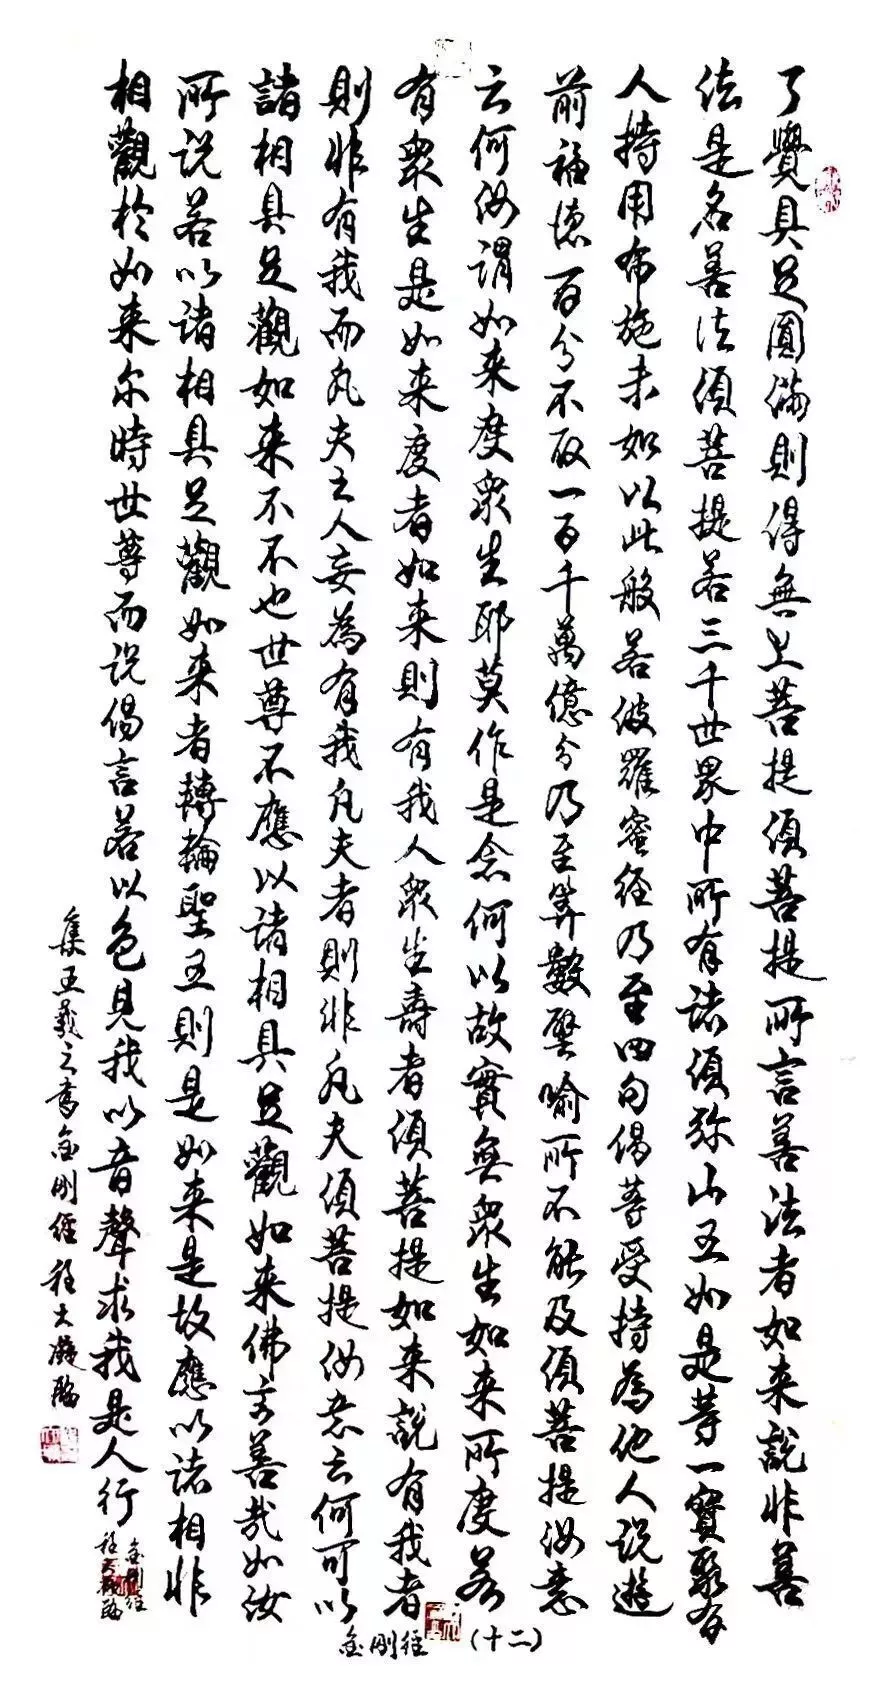 了覺具足圓滿則得無上菩提須菩提所言善法者如来說非善
法是名善法須菩提若三千世界中所有諸須弥山王如是等一寶聚有
人持用布施未如以此般若波羅蜜經乃至四句偈等受持為他人說遊
前福德百分不取一百千萬億分乃至算數譬喻所不能及須菩提汝意
云何汝謂如来度眾生耶莫作是念何以故實無眾生如来所度若
有眾生是如来度者如来則有我人眾生壽者須菩提如来說有我者
則非有我而凡夫之人妄為有我凡夫者則非凡夫須菩提汝意云何可以
諸相具足觀如来不不也世尊不應以諸相具足觀如来佛言善哉如汝
所說若以諸相具足觀如来者轉輪聖王則是如来是故應以諸相非
相觀於如来尔時世尊而說偈言若以色見我以音聲求我是人行
集王羲之書金剛經程大凝臨
金剛經
金剛經 (十二)